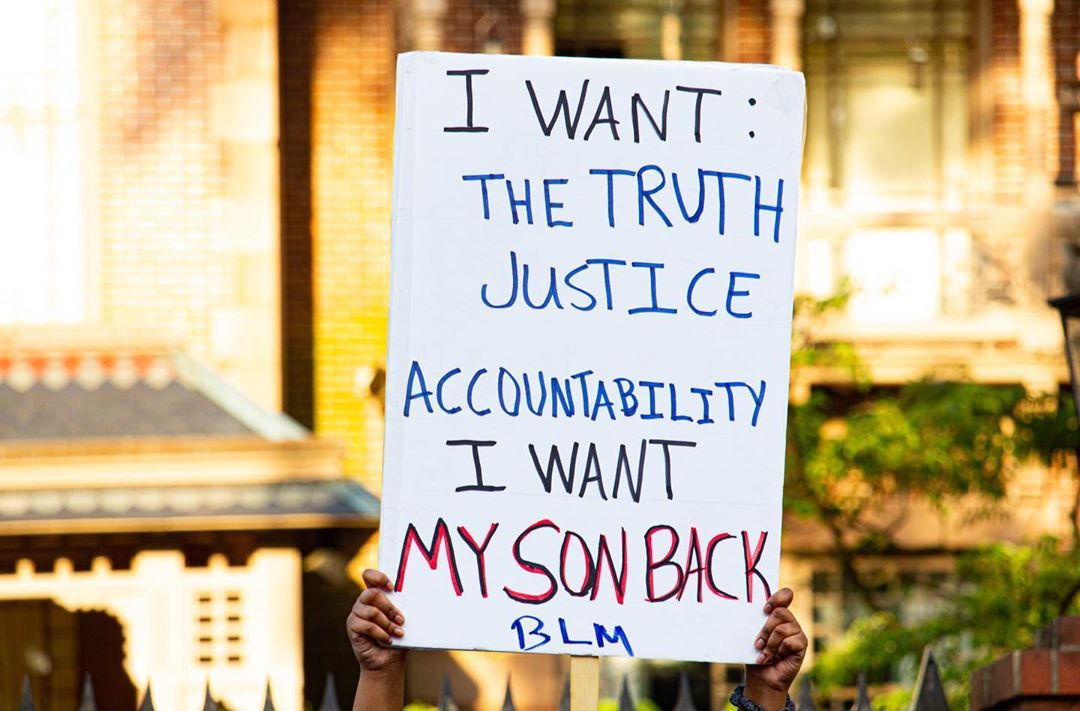 I WANT :
THE TRUTH
JUSTICE
ACCOUNTABILITY
I WANT
MY SON BACK
BLM